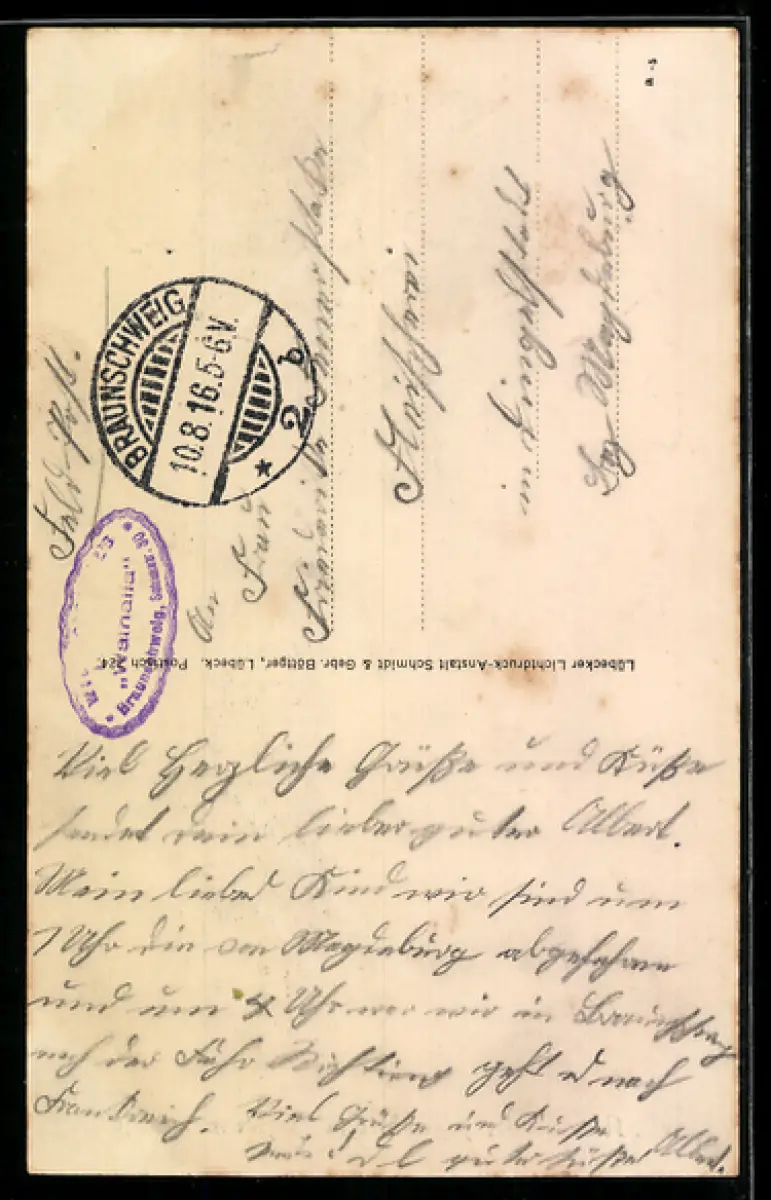 Feld-Post.
BRAUNSCHWEIG
10.8.16.5-6V.
* 2b
"Walhalla"
Braunschweig,
An
Frau
in Dingelstedt
Bez Magdeburg
Lübecker Lichtdruck-Anstalt Schmidt & Gebr. Böttger, Lübeck. Postfach 224.
Viel Herzliche Grüße und Küße
sendet dein lieber guter Albert.
Mein liebes Kind wir sind um
1 Uhr von Magdeburg abgefahren
und um 4 Uhr war wir in Braunschweig
nach der Richtung geht es nach
Frankreich. Viel Grüße und Küsse
guter Albert.